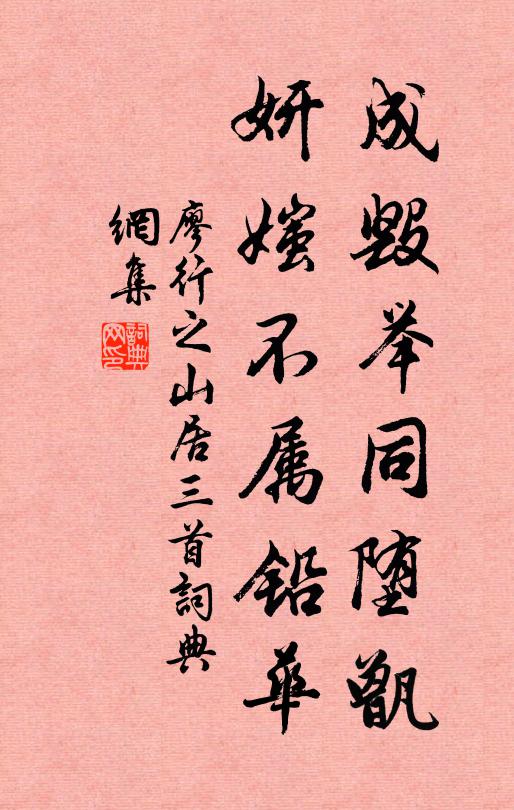 成毁举同堕甑
妍媸不属铅华
廖行之山居三首詞典
網集
詞典
网印